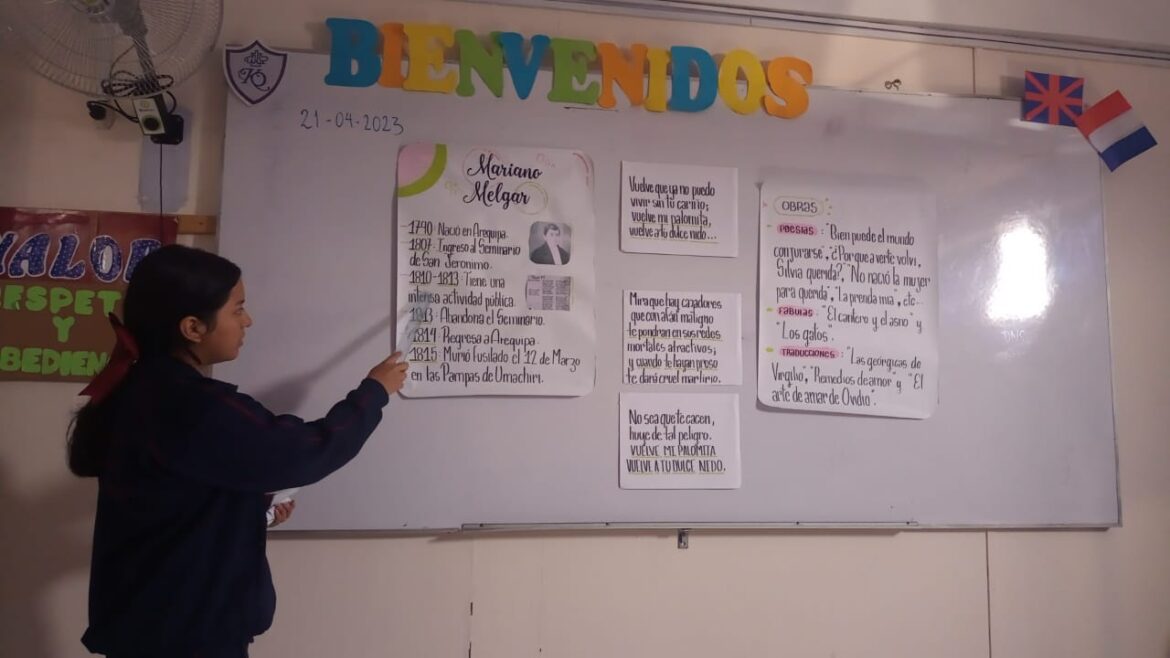 BIENVENIDOS
21-04-2023
VALOR
RESPETO
Y
Mariano
Melgar
1790: Nació en Arequipa.
1807: Ingreso al Seminario
de San Jeronimo.
1810-1813: Tiene una
intensa actividad pública.
1813: Abandona el Seminario.
1814: Regresa a Arequipa.
1815: Murió fusilado el 12 de Marzo
en las Pampas de Umachiri.
Vuelve que ya no puedo
vivir sin tu cariño;
vuelve mi palomita,
vuelve a tu dulce nido...
Mira que hay cazadores
que con afán maligno
te pondran en sus redes
mortales atractivos;
y cuando te hayan preso
te dará cruel martirio.
No sea que te cacen,
huye de tal peligro.
VUELVE MI PALOMITA
VUELVE A TU DULCE NIDO.
OBRAS
POESIAS: "Bien puede el mundo
conjurarse", "¿Porque a verte volvi,
Silvia querida? "No nació la mujer
para querida", "la prenda mia", etc...
FABULAS: "El cantero y el asno" y
"Los gatos".
TRADUCCIONES: "Las geórgicas de
Virgilio", "Remedios de amor" y "El
arte de amar de Ovidio".